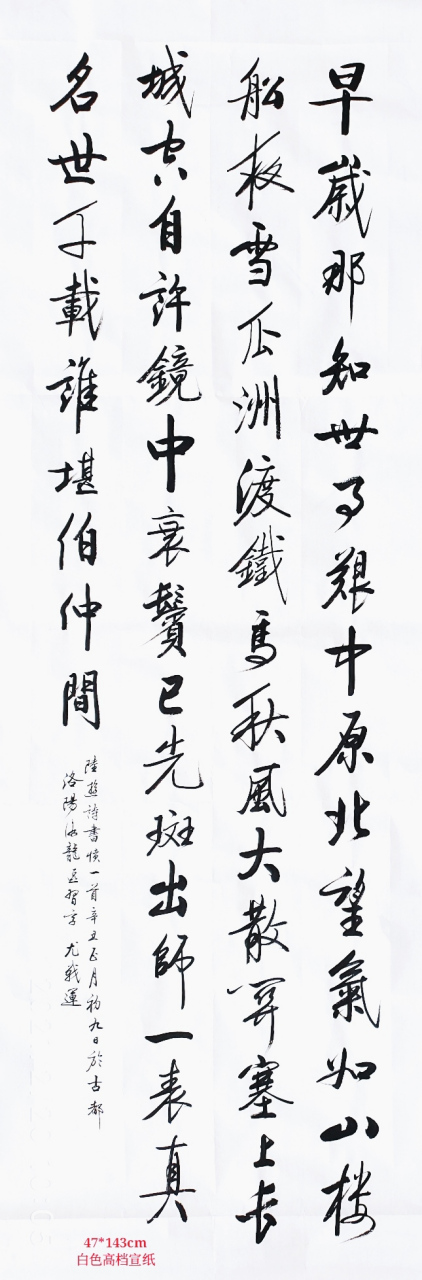 早歲那知世事艱中原北望氣如山楼
船夜雪瓜洲渡鐵馬秋風大散関塞上长
城空自許鏡中衰鬢已先斑出師一表真
名世千載誰堪伯仲間
陸遊詩書憤一首辛丑正月初九日於古都
洛陽洛龍区習字 尤戰運
47*143cm
白色高档宣纸